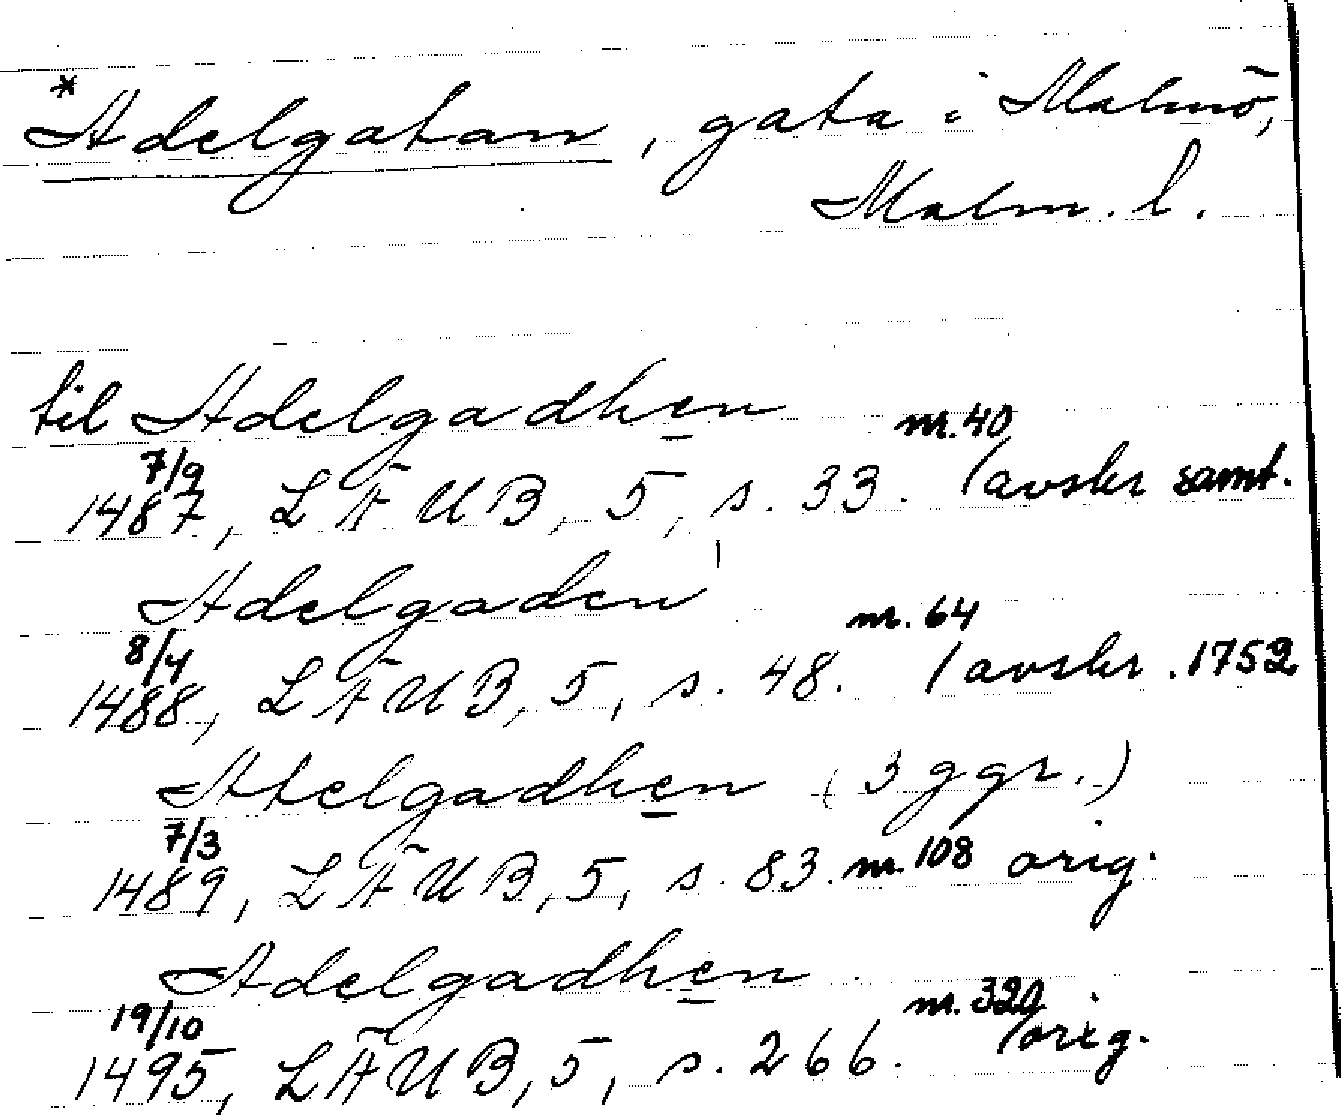 *Adelgatan, gata i Malmö,
Malm. l.
til Adelgadhen
7/9 nr. 40
1487, LÄUB, 5, s. 33. /avskr samt.
Adelgaden
8/4 nr. 64
1488, LÄUB, 5, s. 48. /avskr. 1752
Atelgadhen (3 ggr.)
7/3
1489, LÄUB, 5, s. 83. nr. 108 orig.
Adelgadhen
19/10 nr. 320
1495, LÄUB, 5, s. 266. /orig.